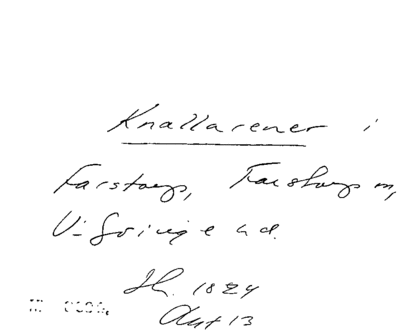 Knallarener i
Farstorp, Farstorp sn,
V. Göinge hd.
Jh. 1824
Aut 13